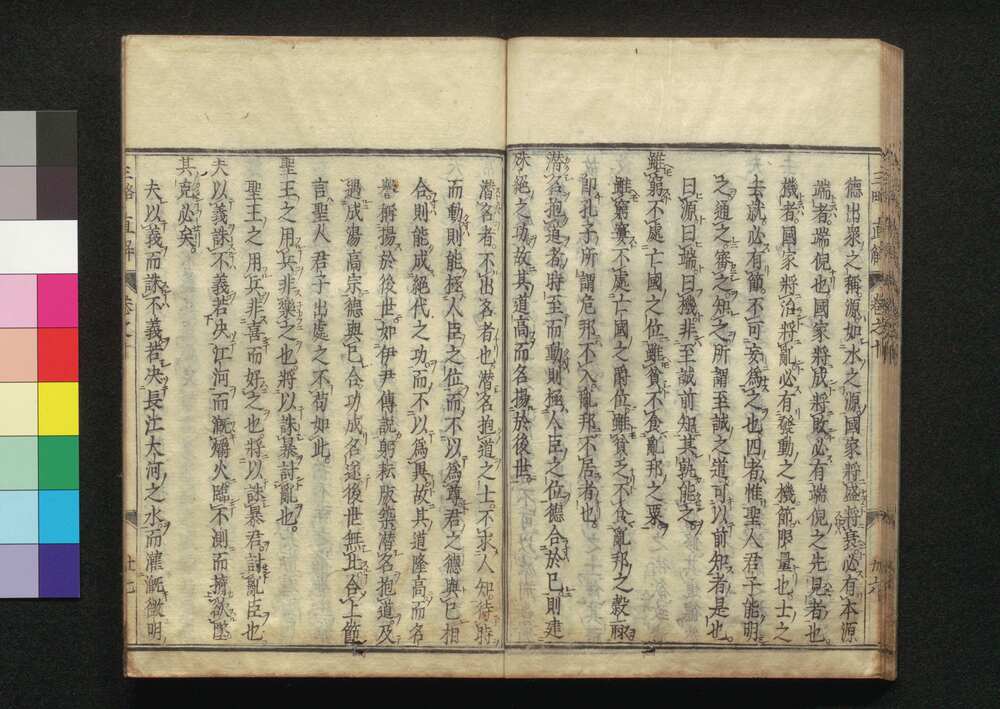 德出衆之稱源如水之源國家將盛將衰必有本源
端者端倪也國家將成將敗必有端倪之先見者也
機者國家將治將亂必有發動之機節限量也士之
去就必有節不可妄爲之也四者惟聖人君子能明
之通之審之知之所謂至誠之道可以前知者是也
曰源曰端曰機非至誠前知其孰能之
雖窮不處亡國之位雖貧不食亂邦之粟
雖窮窶不處亡國之爵位雖貧乏不食亂邦之穀祿
卽孔子所謂危邦不入亂邦不居者也
潜名抱道者時至而動則極人臣之位德合於已則建
殊絕之功故其道高而名揚於後世
潜名者不出名者也潜名抱道之士不求人知待時
而動則能極人臣之位而不以爲尊君之德與已相
合則能成絕代之功而不以爲異故其道隆高而名
譽稱揚於後世如伊尹傅說躬耘版築潜名抱道及
遇成湯高宗德與已合功成名遂後世無比合上節
言聖人君子出處之不苟如此
聖王之用兵非樂之也將以誅暴討亂也
聖王之用兵非喜而好之也將以誅暴君討亂臣也
夫以義誅不義若决江河而漑爝火臨不測而擠欲墜
其克必矣
夫以義而誅不義若决長江大河之水而灌漑微明
三略直解
卷之下
廿六
三略直解
卷之下
廿七